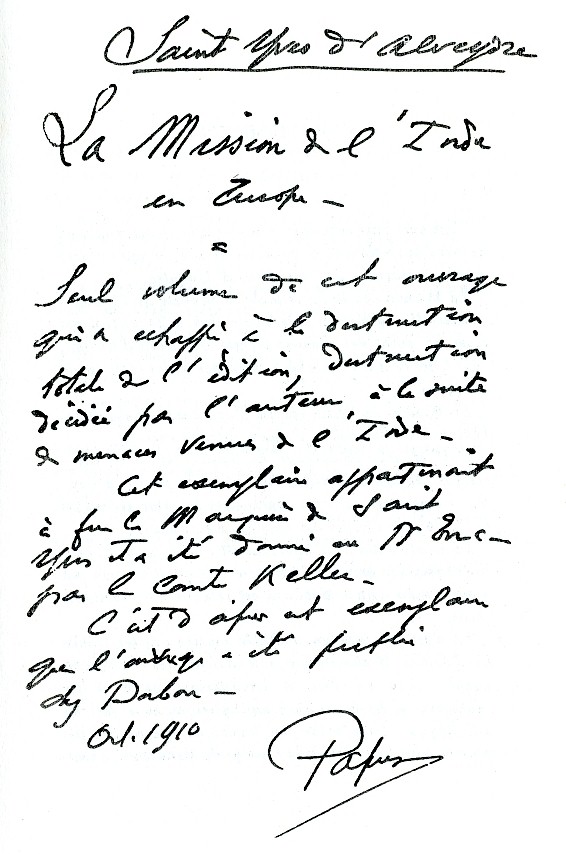 Saint Yves d'Alveydre
La Mission de l'Inde
en Europe –
=
Seul volume de cet ouvrage
qui a echappé à la destruction
totale de l'édition, destruction
décidée par l'auteur à la suite
de menaces venues de l'Inde –
Cet exemplaire appartenait
à feu le Marquis de Saint
Yves et a été donné au Dr Enc–
par le Comte Keller –
C'est d'après cet exemplaire
que l'ouvrage a été publié
chez Dorbon –
Oct. 1910
Papus